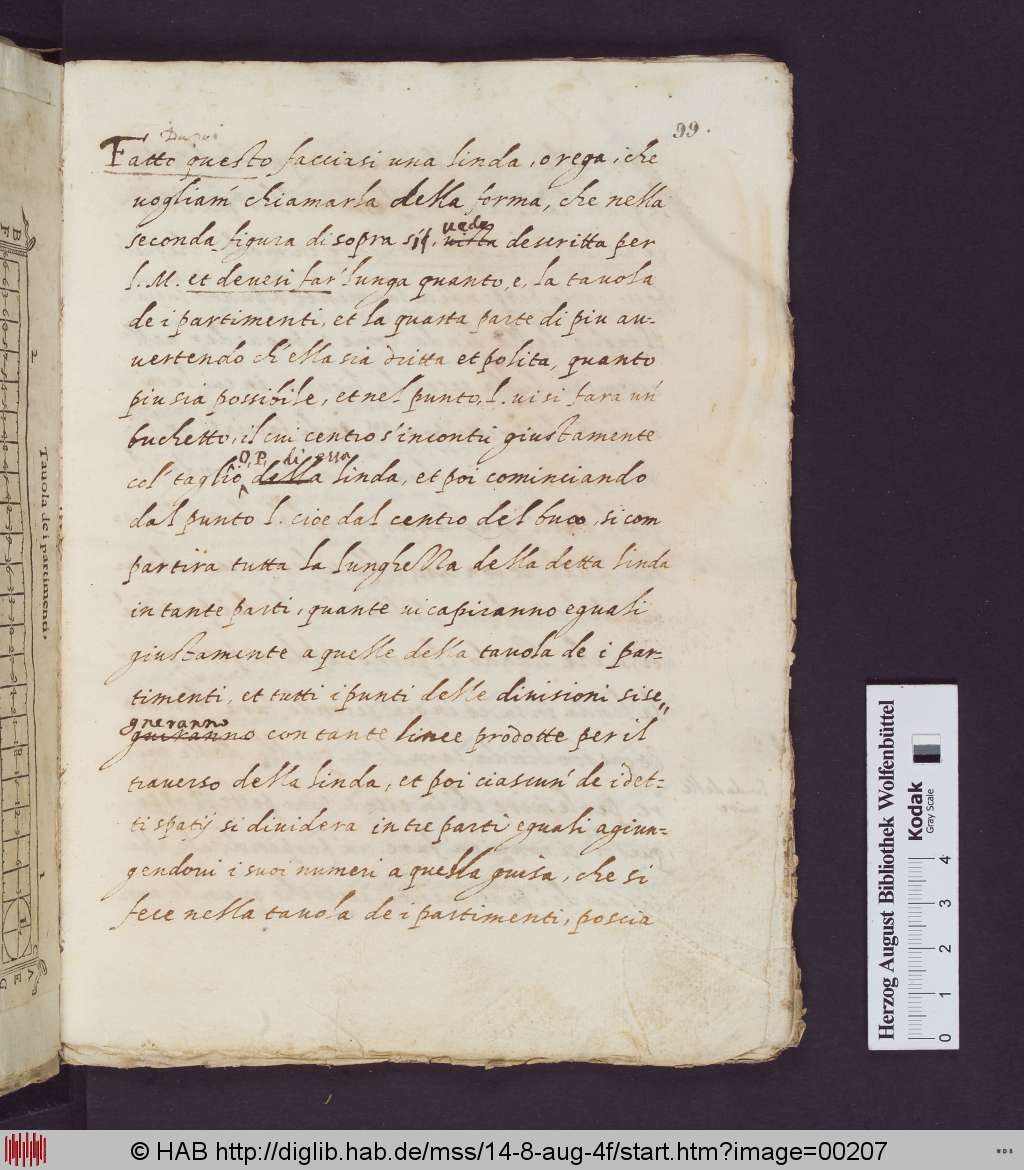 99.
Da poi
Fatto questo facciasi una linda, o rega, che
vogliam' chiamarla della forma, che nella
vede
seconda figura di sopra si, vista descritta per
l. M. et devesi far' lunga quanto, e, la tavola
de i partimenti, et la quarta parte di piu au-
uertendo ch'ella sia dritta et polita, quanto
piu sia possibile, et nel punto, l. vi si fara un'
buchetto, il cui centro s'incontri giustamente
O.P. di essa
col' taglio della linda, et poi cominciando
dal punto l. cioe dal centro del buco, si com
partira tutta la lunghezza della detta linda
in tante parti, quante vi capiranno eguali
giustamente a quelle della tavola de i par-
timenti, et tutti i punti delle divisioni si se„
gneranno
guiranno con tante linee prodotte per il
traverso della linda, et poi ciascun' de i det-
ti spatij si dividera in tre parti eguali agiun-
gendovi i suoi numeri a quella guisa, che si
fece nella tavola de i partimenti, poscia
Tauola de i partimenti.
B
F
2
1
C
G
E
A
Herzog August Bibliothek Wolfenbüttel
Kodak
Gray Scale
0 1 2 3 4
© HAB http://diglib.hab.de/mss/14-8-aug-4f/start.htm?image=00207